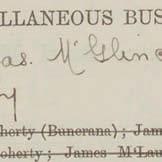 LLANEOUS BUS
as. McGlin
y
herty (Bunerana); Jam
oherty; James M'Lau